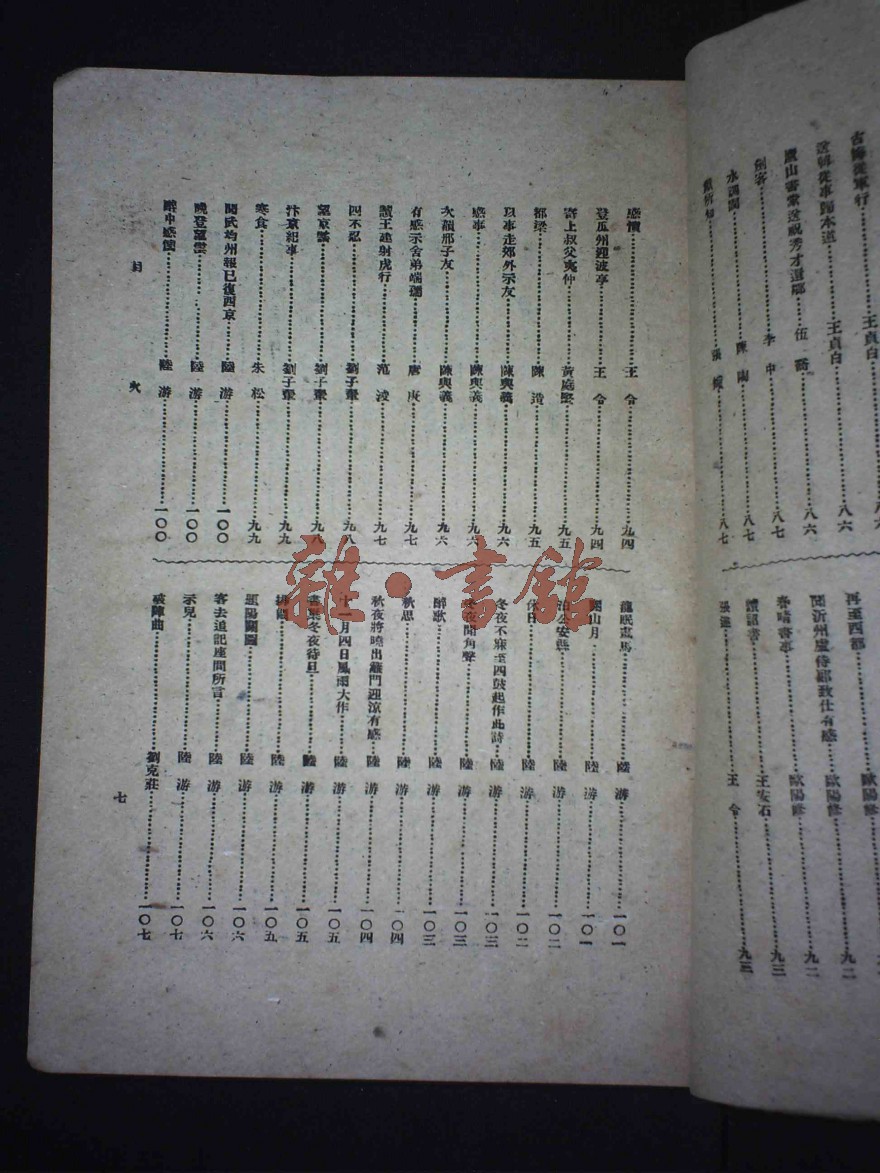 古
王貞白
八六
送韓從事歸本道
王貞白
八六
廬山書堂送祝秀才還鄉
伍喬
八六
劍客
李中
八七
水調詞
陳陶
八七
張
八七
歐陽修
再至西都
歐陽修
九二
聞沂州盧侍郎致仕有感
歐陽修
九二
春晴書事
歐陽修
九二
讀詔書
王安石
九三
張巡
王令
九三
感憤
王令
九四
登瓜州迎波亭
王令
九四
寄上叔父夷仲
黃庭堅
九五
都梁
陳造
九五
以事走郊外示友
陳與義
九六
感事
陳與義
九六
次韻邢子友
陳與義
九六
有感示舍弟端孺
唐庚
九七
讀王建射虎行
范浚
九七
四不忍
劉子翬
九八
望京謠
劉子翬
九八
汴京紀事
劉子翬
九九
寒食
朱松
九九
聞武均州報已復西京
陸游
一〇〇
晚登望雲
陸游
一〇〇
醉中感懷
陸游
一〇〇
龍眠畫馬
陸游
一〇一
關山月
陸游
一〇一
泊公安縣
陸游
一〇二
休日
陸游
一〇二
冬夜不寐至四鼓起作此詩
陸游
一〇三
冬夜聞角聲
陸游
一〇三
醉歌
陸游
一〇三
秋思
陸游
一〇四
秋夜將曉出籬門迎涼有感
陸游
一〇四
十一月四日風雨大作
陸游
一〇五
冬夜待旦
陸游
一〇五
排悶
陸游
一〇五
題陽關圖
陸游
一〇六
客去追記座間所言
陸游
一〇六
示兒
陸游
一〇七
破陣曲
劉克莊
一〇七
目次
七
雜·書館